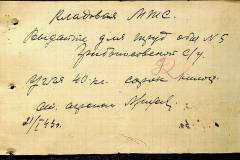 Кладовая МТС.
Выдайте для труд общ N 5
Грибановской С/у.
Угля 40 кг. сорок килог.
ст. агроном
21/I 43 г.